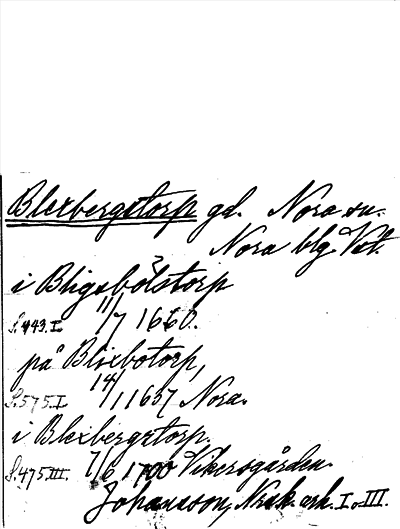 Blexbergstorp gd. Nora sn.
Nora blg Vstl.
i Bligsbolstorp
S. 443. I. 11/7 1660.
på Blixbotorp,
S. 575. I 14/1 1657 Nora.
i Blexbergstorp.
S. 475 III. 7/6 1700 Vikersgården.
Johansson, Norask. ark. I o. III.